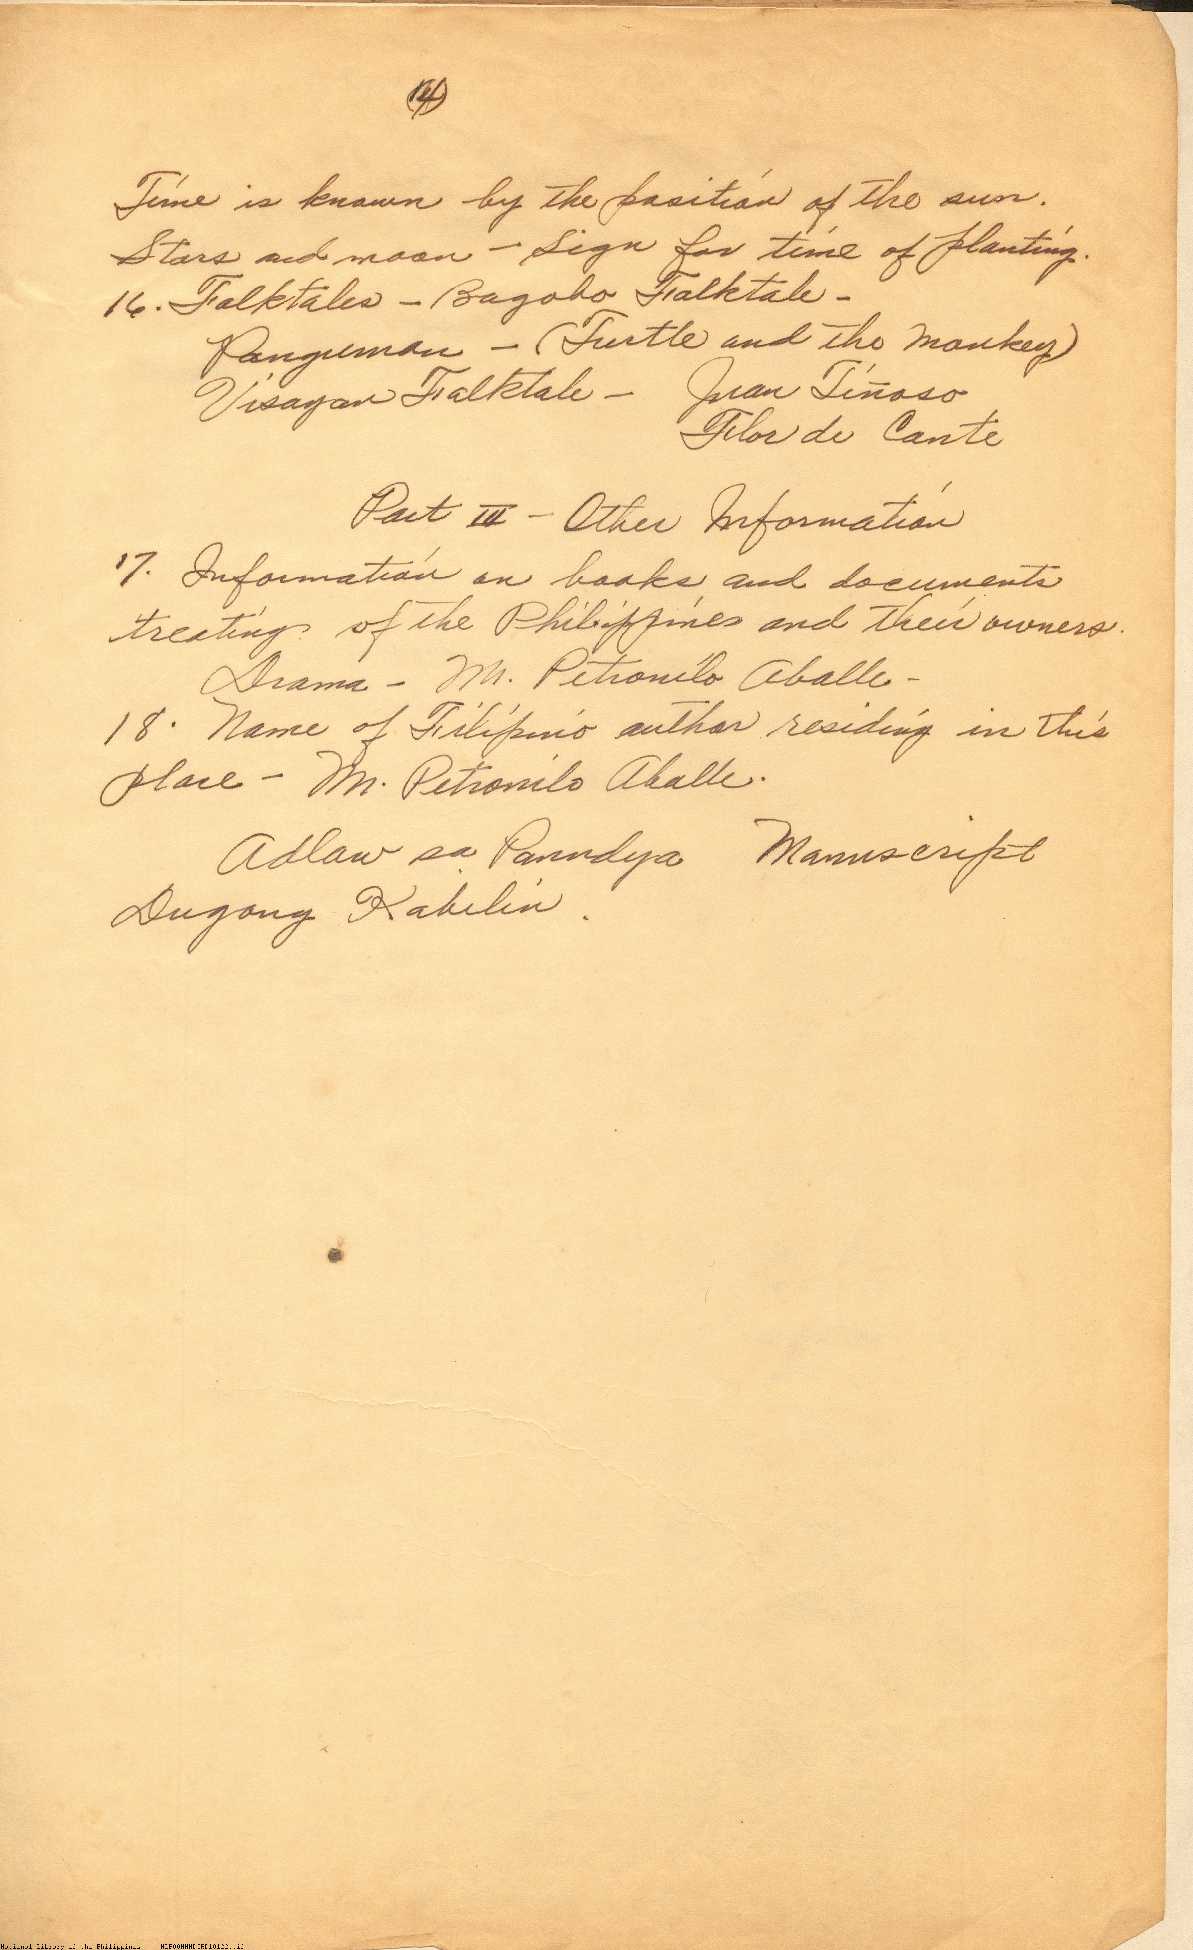 (14)
Time is known by the position of the sun.
Stars and moon - Sign for time of planting.
16. Folktales - Bagobo Folktale -
Panguman - (Turtle and the Monkey)
Visayan Folktale - Juan Tiñoso
Flor de Cante
Part III - Other Information
17. Information on books and documents
treating of the Philippines and their owners.
Drama - Mr. Petronilo Aballe -
18. Name of Filipino author residing in this
place - Mr. Petronilo Aballe.
Adlaw sa Manuscript
Dugong Kabilin.
National Library of the Philippines